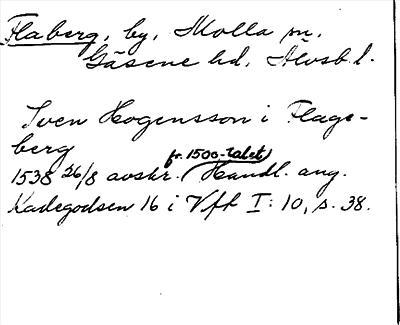 Flaberg, by, Molla sn,
Gäsene hd, Älvsb. l.
Sven Hogensson i Flage-
berg
fr. 1500-talet
1538 26/8 avskr. Handl. ang.
Kadegodsen 16 i Vft I: 10, s. 38.